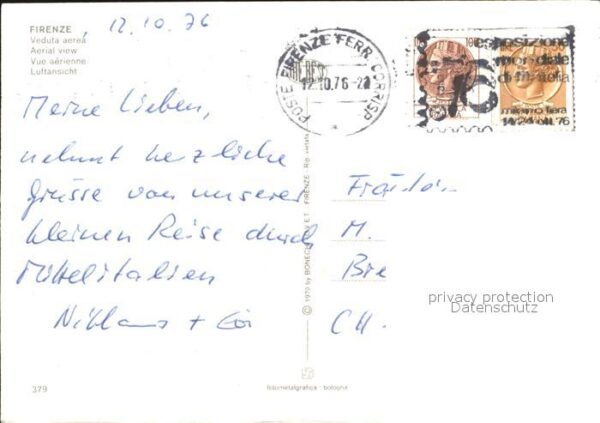 FIRENZE
, 12.10.76
Veduta aerea
Aerial view
Vue aérienne
Luftansicht
POSTE FIRENZE FERR. CORRISP.
12.10.76-21
esposizione
mondiale
di filatelia
milano fiera
14/24 ott. 76
Meine Lieben,
nehmt herzliche
Grüsse von unserer
kleinen Reise durch
Mittelitalien
Niklaus +
Fräulein
M.
Bre
CH.
privacy protection
Datenschutz
© 1970 by BONECHI FIRENZE
379
fotometalgrafica - bologna